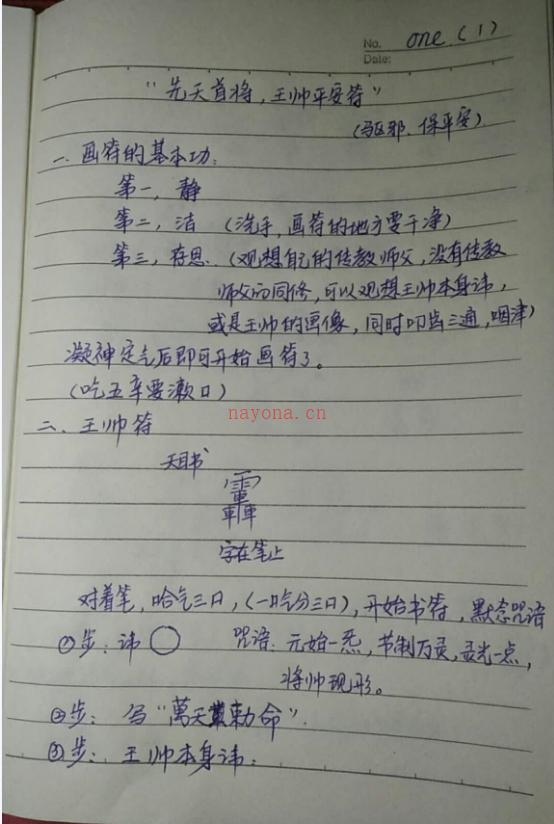 No. one (1)
Date:
"先天首将,王帅平安符"
(驱邪、保平安)
一、画符的基本功:
第一,静
第二,洁 (洗手,画符的地方要干净)
第三,存思.(观想自己的传教师父,没有传教
师父的同修,可以观想王帅本身讳,
或是王帅的画像,同时叩齿三通,咽津)
凝神定气后即可开始画符了。
(吃五辛要漱口)
nayona.cn
二、王帅符
天目书
字在笔上
对着笔,哈气三口,(一口气分三口),开始书符,默念咒语
①步:讳 ○ 咒语:元始一炁,节制万灵,灵光一点,
将帅现形。
②步:写"萬天敕命".
③步:王帅本身讳: